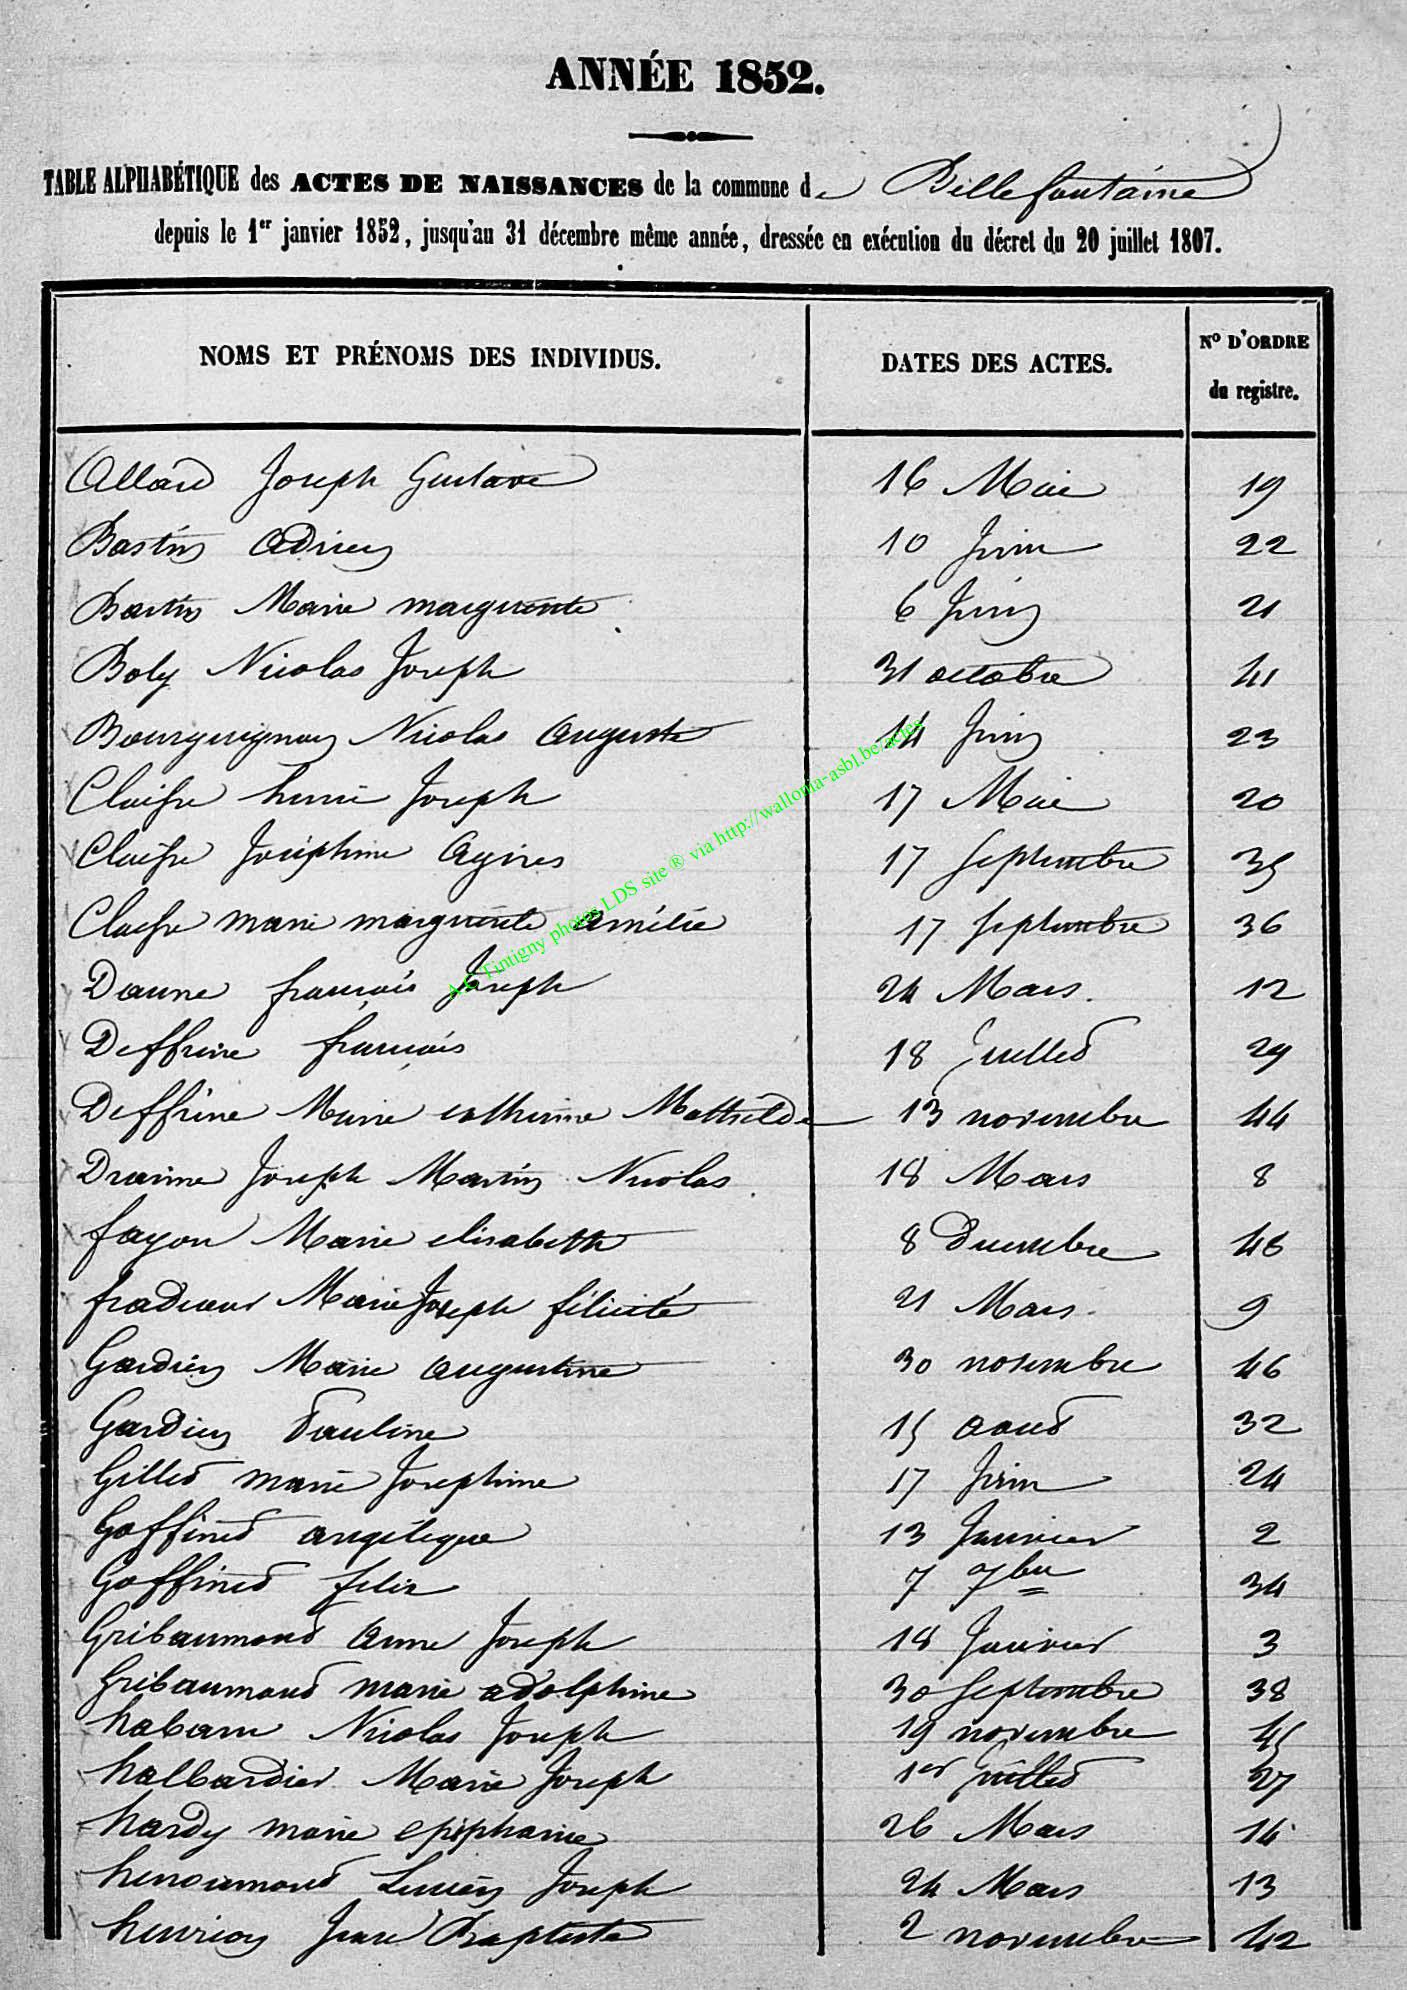 ANNÉE 1852.
TABLE ALPHABÉTIQUE des ACTES DE NAISSANCES de la commune de Bellefontaine
depuis le 1er janvier 1852, jusqu'au 31 décembre même année, dressée en exécution du décret du 20 juillet 1807.
NOMS ET PRÉNOMS DES INDIVIDUS. DATES DES ACTES. No D'ORDRE
du registre.
Allard Joseph Gustave 16 Mai 19
Bastin Adrien 10 Juin 22
Bastin Marie marguerite 6 Juin 21
Boly Nicolas Joseph 31 octobre 41
Bourguignon Nicolas auguste 14 Juin 23
Claisse henri Joseph 17 Mai 20
Claisse Joséphine Agnes 17 Septembre 35
Claisse marie marguerite amélie 17 Septembre 36
Daune françois Joseph 24 Mars. 12
Deffrène françois 18 Juillet 29
Deffrène Marie catherine Mathilde 13 novembre 44
Draime Joseph Martin Nicolas 18 Mars 8
fayon Marie elisabeth 8 Decembre 48
fradcour Marie Joseph félicité 21 Mars 9
Gardien Marie augustine 30 novembre 46
Gardien Pauline 15 aout 32
Gillet marie Josephine 17 Juin 24
Goffinet angélique 13 Janvier 2
Goffinet felix 7 7bre 34
Gribaumont anne Joseph 18 Janvier 3
Gribaumont marie adolphine 30 Septembre 38
habaru Nicolas Joseph 19 novembre 45
hallbardier Marie Joseph 1er Juillet 27
hardy marie epiphanie 26 Mars 14
henoumont Lucien Joseph 24 Mars 13
henrion Jean Baptiste 2 novembre 42
A.C Tintigny photos LDS site ® via http://wallonia-asbl.be/actes